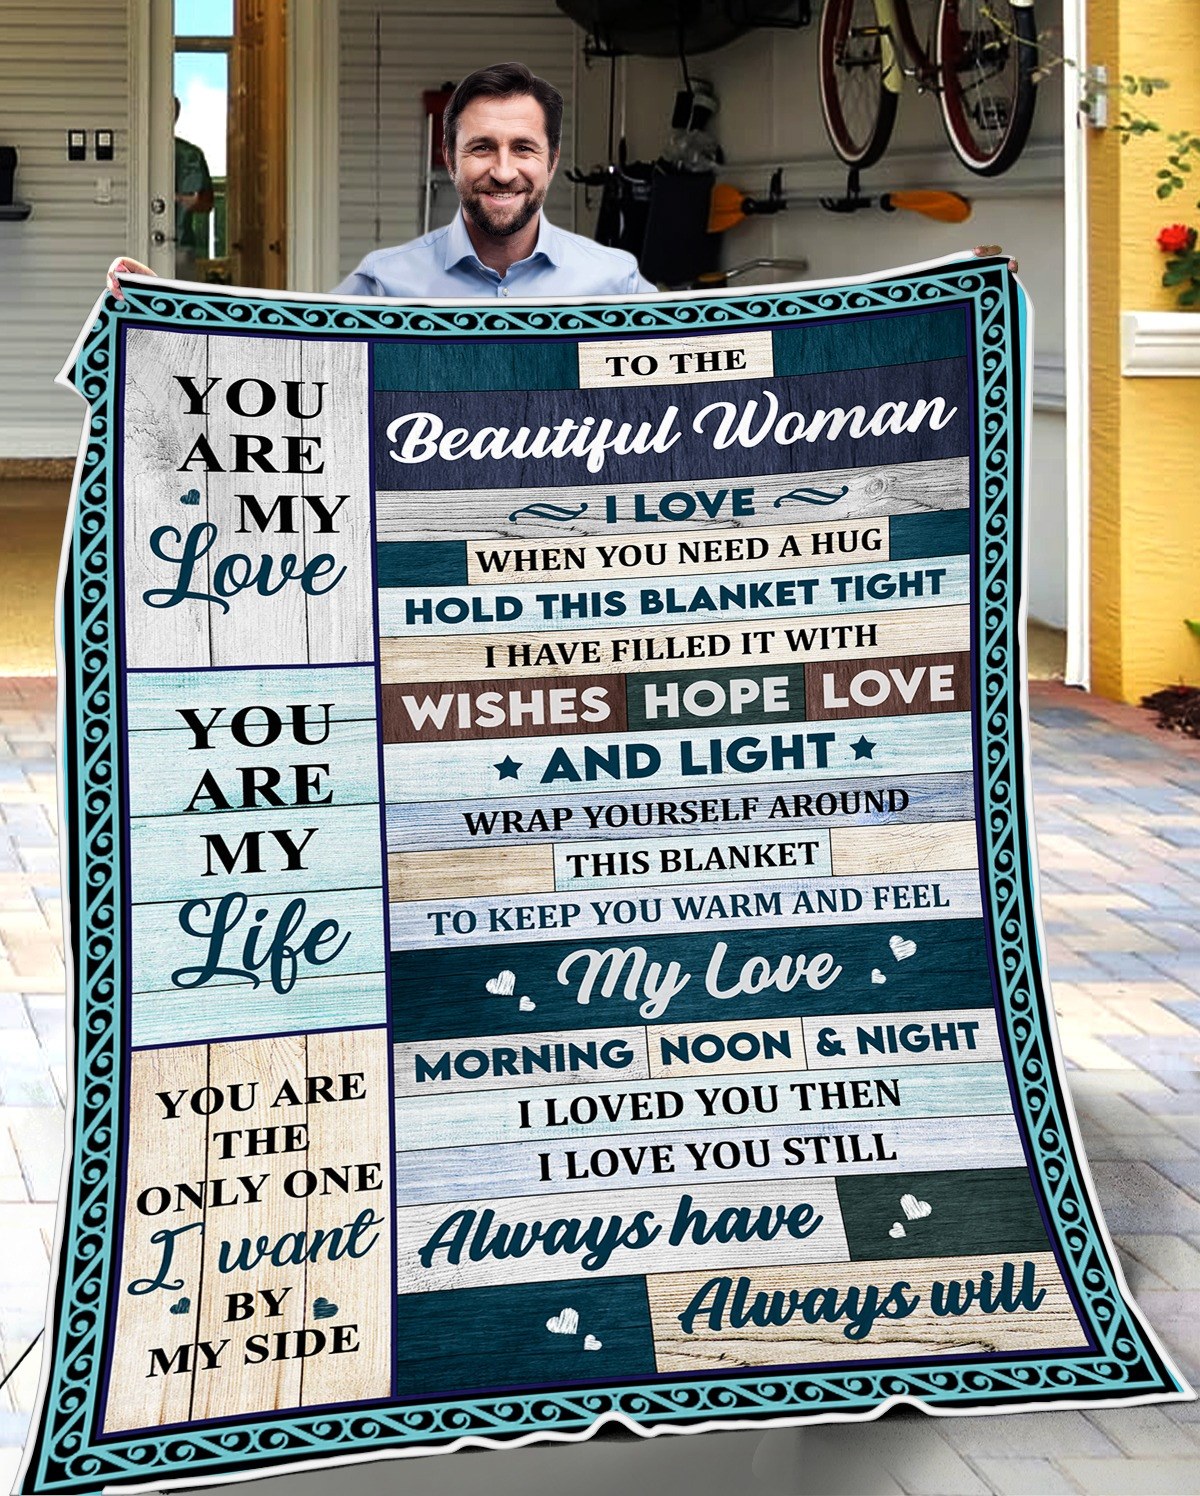 YOU
ARE
MY
Love
YOU
ARE
MY
Life
YOU ARE
THE
ONLY ONE
I want
BY
MY SIDE
TO THE
Beautiful Woman
I LOVE
WHEN YOU NEED A HUG
HOLD THIS BLANKET TIGHT
I HAVE FILLED IT WITH
WISHES HOPE LOVE
AND LIGHT
WRAP YOURSELF AROUND
THIS BLANKET
TO KEEP YOU WARM AND FEEL
My Love
MORNING NOON & NIGHT
I LOVED YOU THEN
I LOVE YOU STILL
Always have
Always will